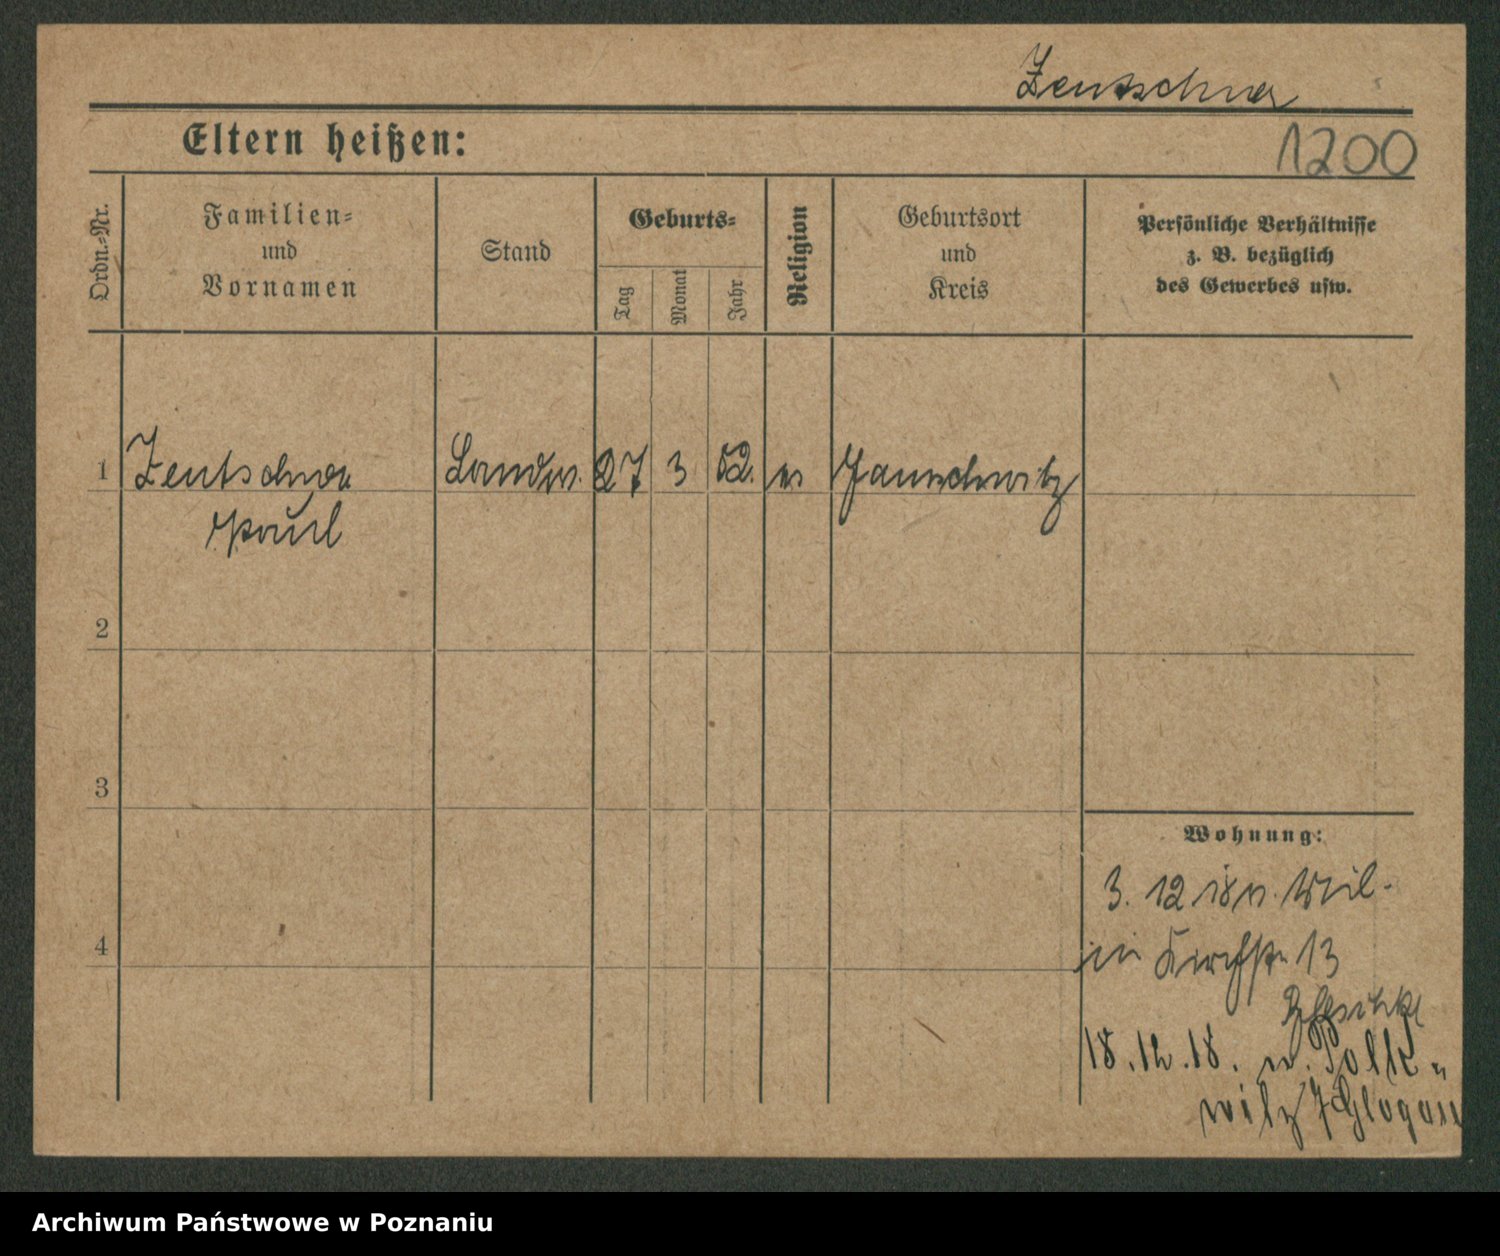 Zentschner
Eltern heißen:
1200
Ordn.-Nr.
Familien-
und
Vornamen
Stand
Geburts-
Tag
Monat
Jahr
Religion
Geburtsort
und
Kreis
Persönliche Verhältnisse
z. B. bezüglich
des Gewerbes usw.
1 Zentschner Landw. 27 3 52. ev
Paul
2
3
4
Wohnung:
3. 12 18 v.
in Kirchstr 13
18.12.18. n. Polk-
witz / Glogau
Archiwum Państwowe w Poznaniu